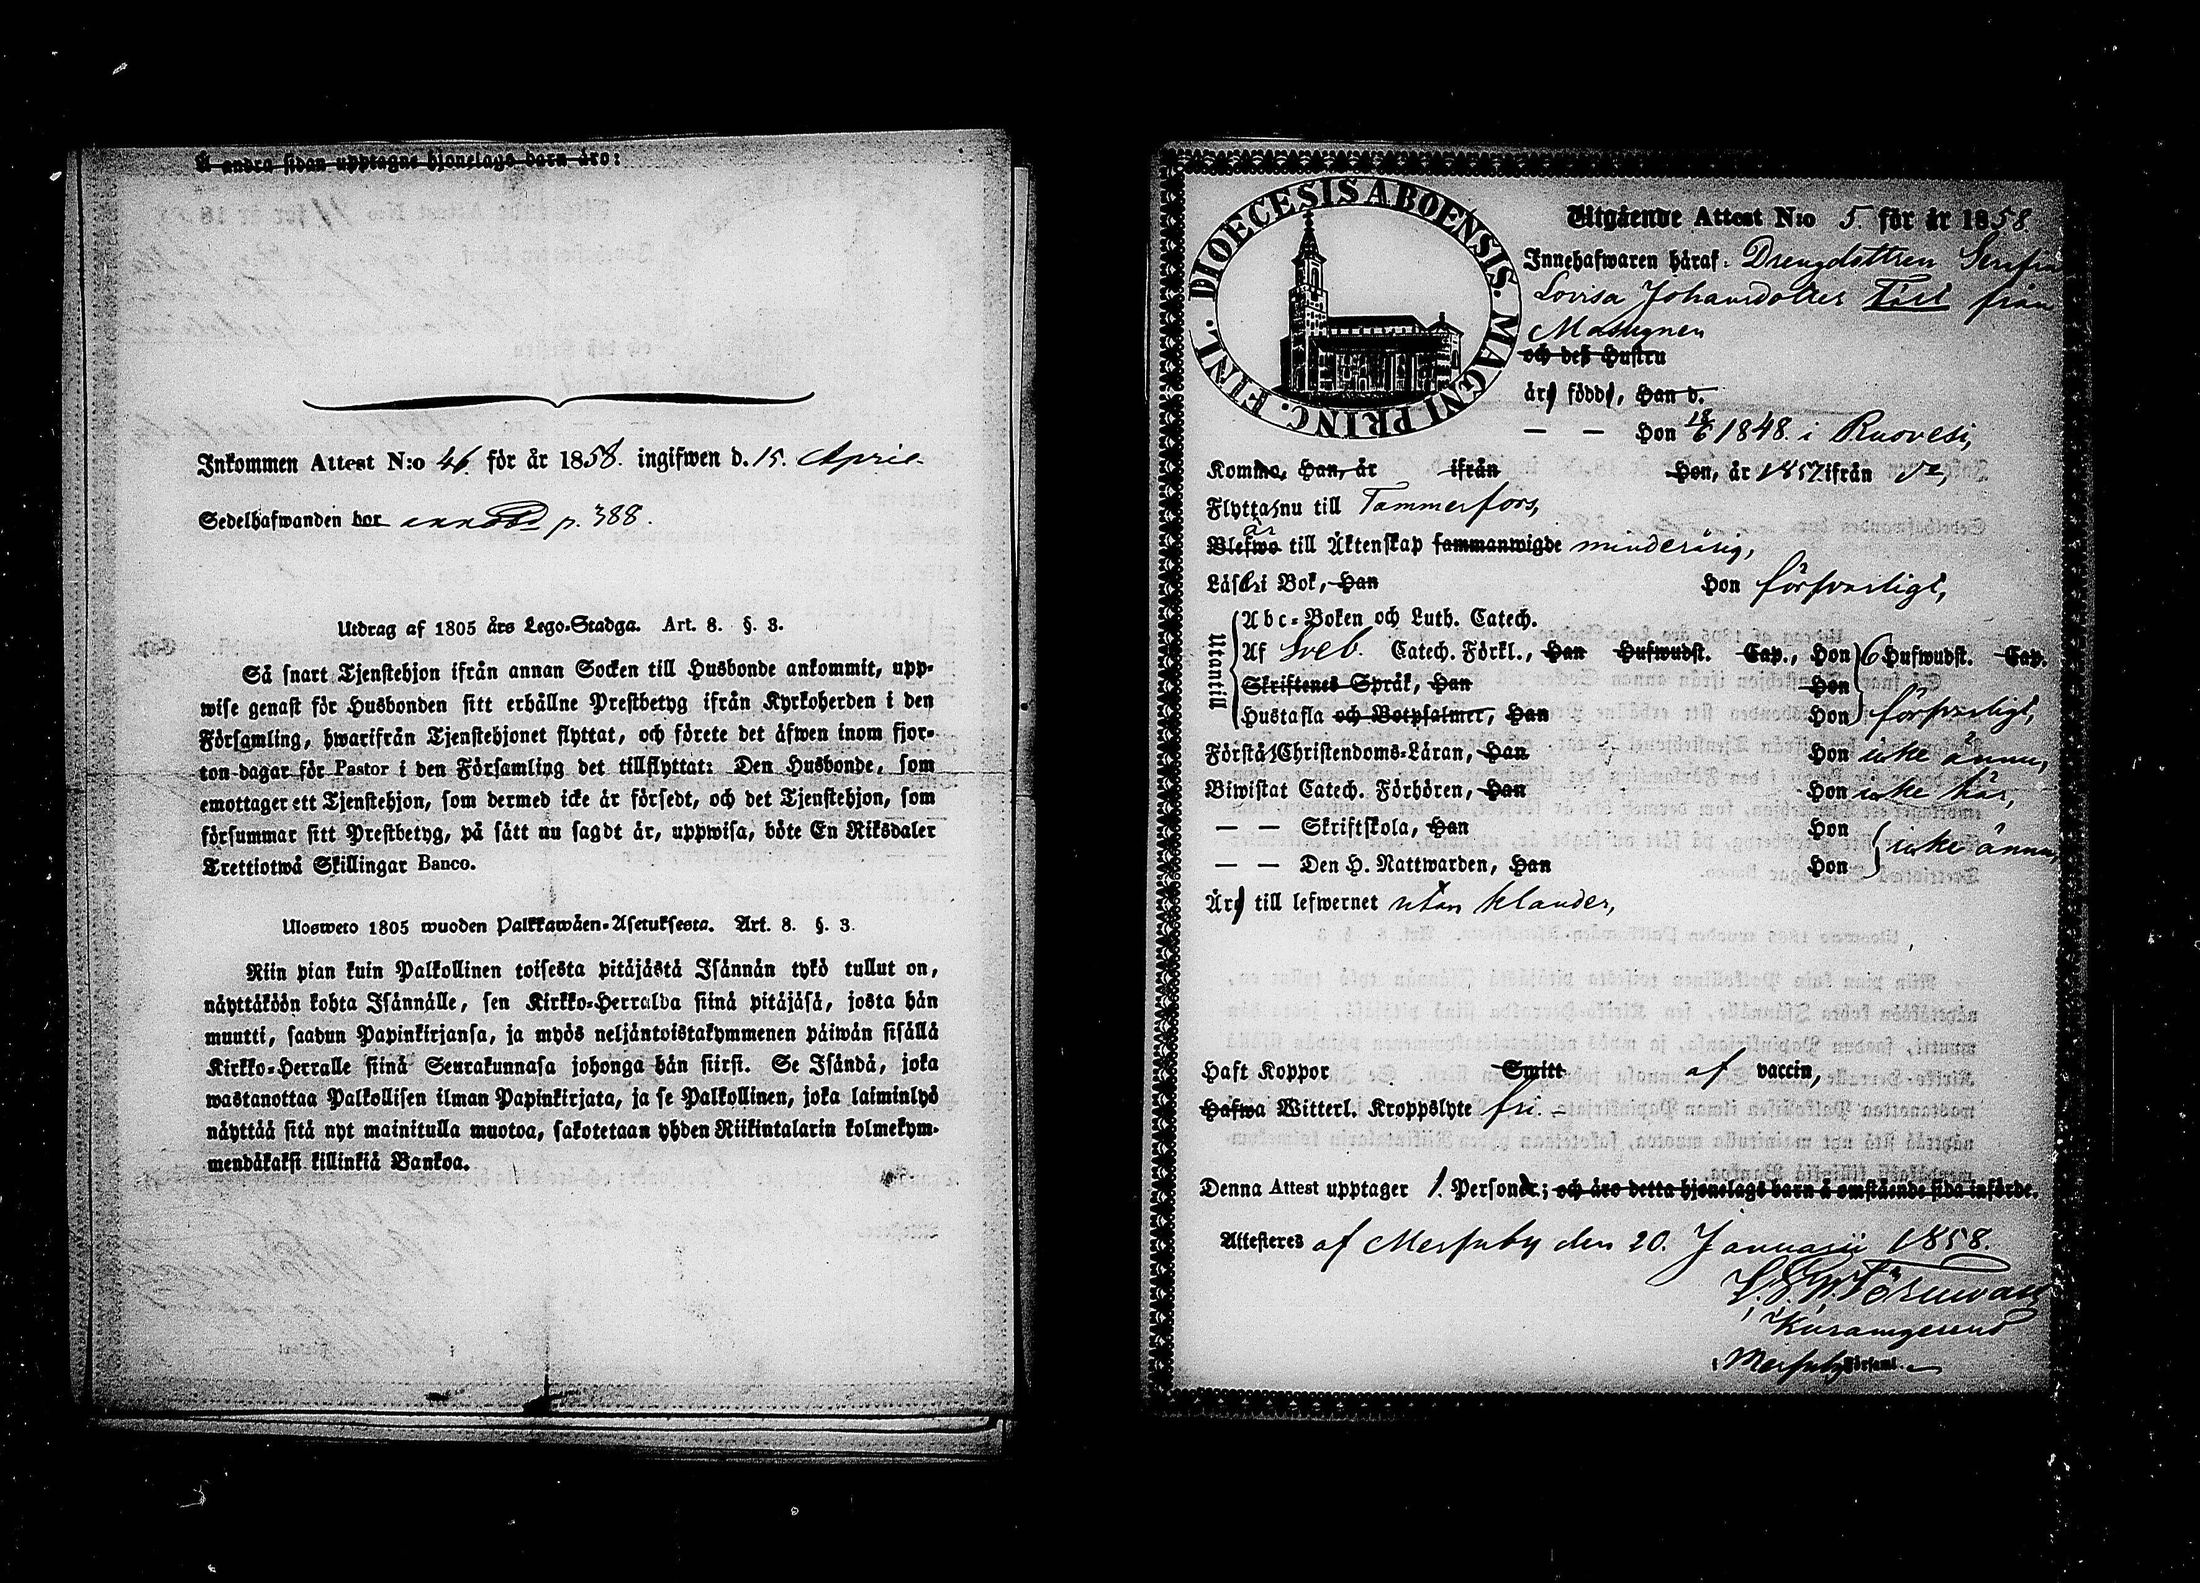 Å andra sidan upptagne hjonelags barn äro:
Inkommen Attest N:o 46. för år 1858. ingifwen d. 15. April.
Sedelhafwanden bor p. 388.
Utdrag af 1805 års Lego-Stadga. Art. 8. §. 3.
Så snart Tjenstehjon ifrån annan Socken till Husbonde ankommit, upp-
wise genast för Husbonden sitt erhållne Prestbetyg ifrån Kyrkoherden i den
Församling, hwarifrån Tjenstehjonet flyttat, och förete det äfwen inom fjor-
ton dagar för Pastor i den Församling det tillflyttat: Den Husbonde, som
emottager ett Tjenstehjon, som dermed icke är försedt, och det Tjenstehjon, som
försummar sitt Prestbetyg, på sätt nu sagdt är, uppwisa, böte En Riksdaler
Trettiotwå Skillingar Banco.
Ulosweto 1805 wuoden Palkkawäen-Asetuksesta. Art. 8. §. 3.
Niin pian kuin Palkollinen toisesta pitäjästä Isännän tykö tullut on,
näyttäköön kohta Isännälle, sen Kirkko-Herralda siinä pitäjäsä, josta hän
muutti, saadun Papinkirjansa, ja myös neljäntoistakymmenen päiwän sisällä
Kirkko-Herralle siinä Seurakunnasa johonga hän siirsi. Se Isändä, joka
wastanottaa Palkollisen ilman Papinkirjata, ja se Palkollinen, joka laiminlyö
näyttää sitä nyt mainitulla muotoa, sakotetaan yhden Riikintalarin kolmekym-
mendäkaksi killinkiä Bankoa.
DIOECESIS ABOENSIS. MAGNI PRINC. FINL.
Utgående Attest N:o 5. för år 1858
Innehafwaren häraf: Drengdottren Serafia
Lovisa Johansdotter från
Masugnen
och deß Hustru
äro födde, Han d.
— — Hon 18/6 1848. i Ruovesi,
Komne, Han, år ifrån Hon, år 1857 ifrån d:o,
Flytta nu till Tammerfors,
är
Blefwo till Äktenskap sammanwigde minderårig,
Läser i Bok, Han Hon försvarligt,
Utantill
Abc-Boken och Luth. Catech.
Af Sveb. Catech. Förkl., Han Hufwudst. Cap., Hon 6 Hufwudst. Cap.
Skriftenes Språk, Han Hon
Hustafla och Botpsalmer, Han Hon försvarligt,
Förstå Christendoms-Läran, Han Hon icke ännu,
Biwistat Catech. Förhören, Han Hon icke här,
— — Skriftskola, Han Hon
icke ännu,
— — Den H. Nattwarden, Han Hon
Äro till lefwernet utan klander,
Haft Koppor Smitt af vaccin,
Hafwa Witterl. Kroppslyte fri. –
Denna Attest upptager 1. Personer; och äro detta hjonelags barn å omstående sida införde.
Attesteres af Messuby den 20. Januarii 1858.
Törnwall
i Messuby Församl.